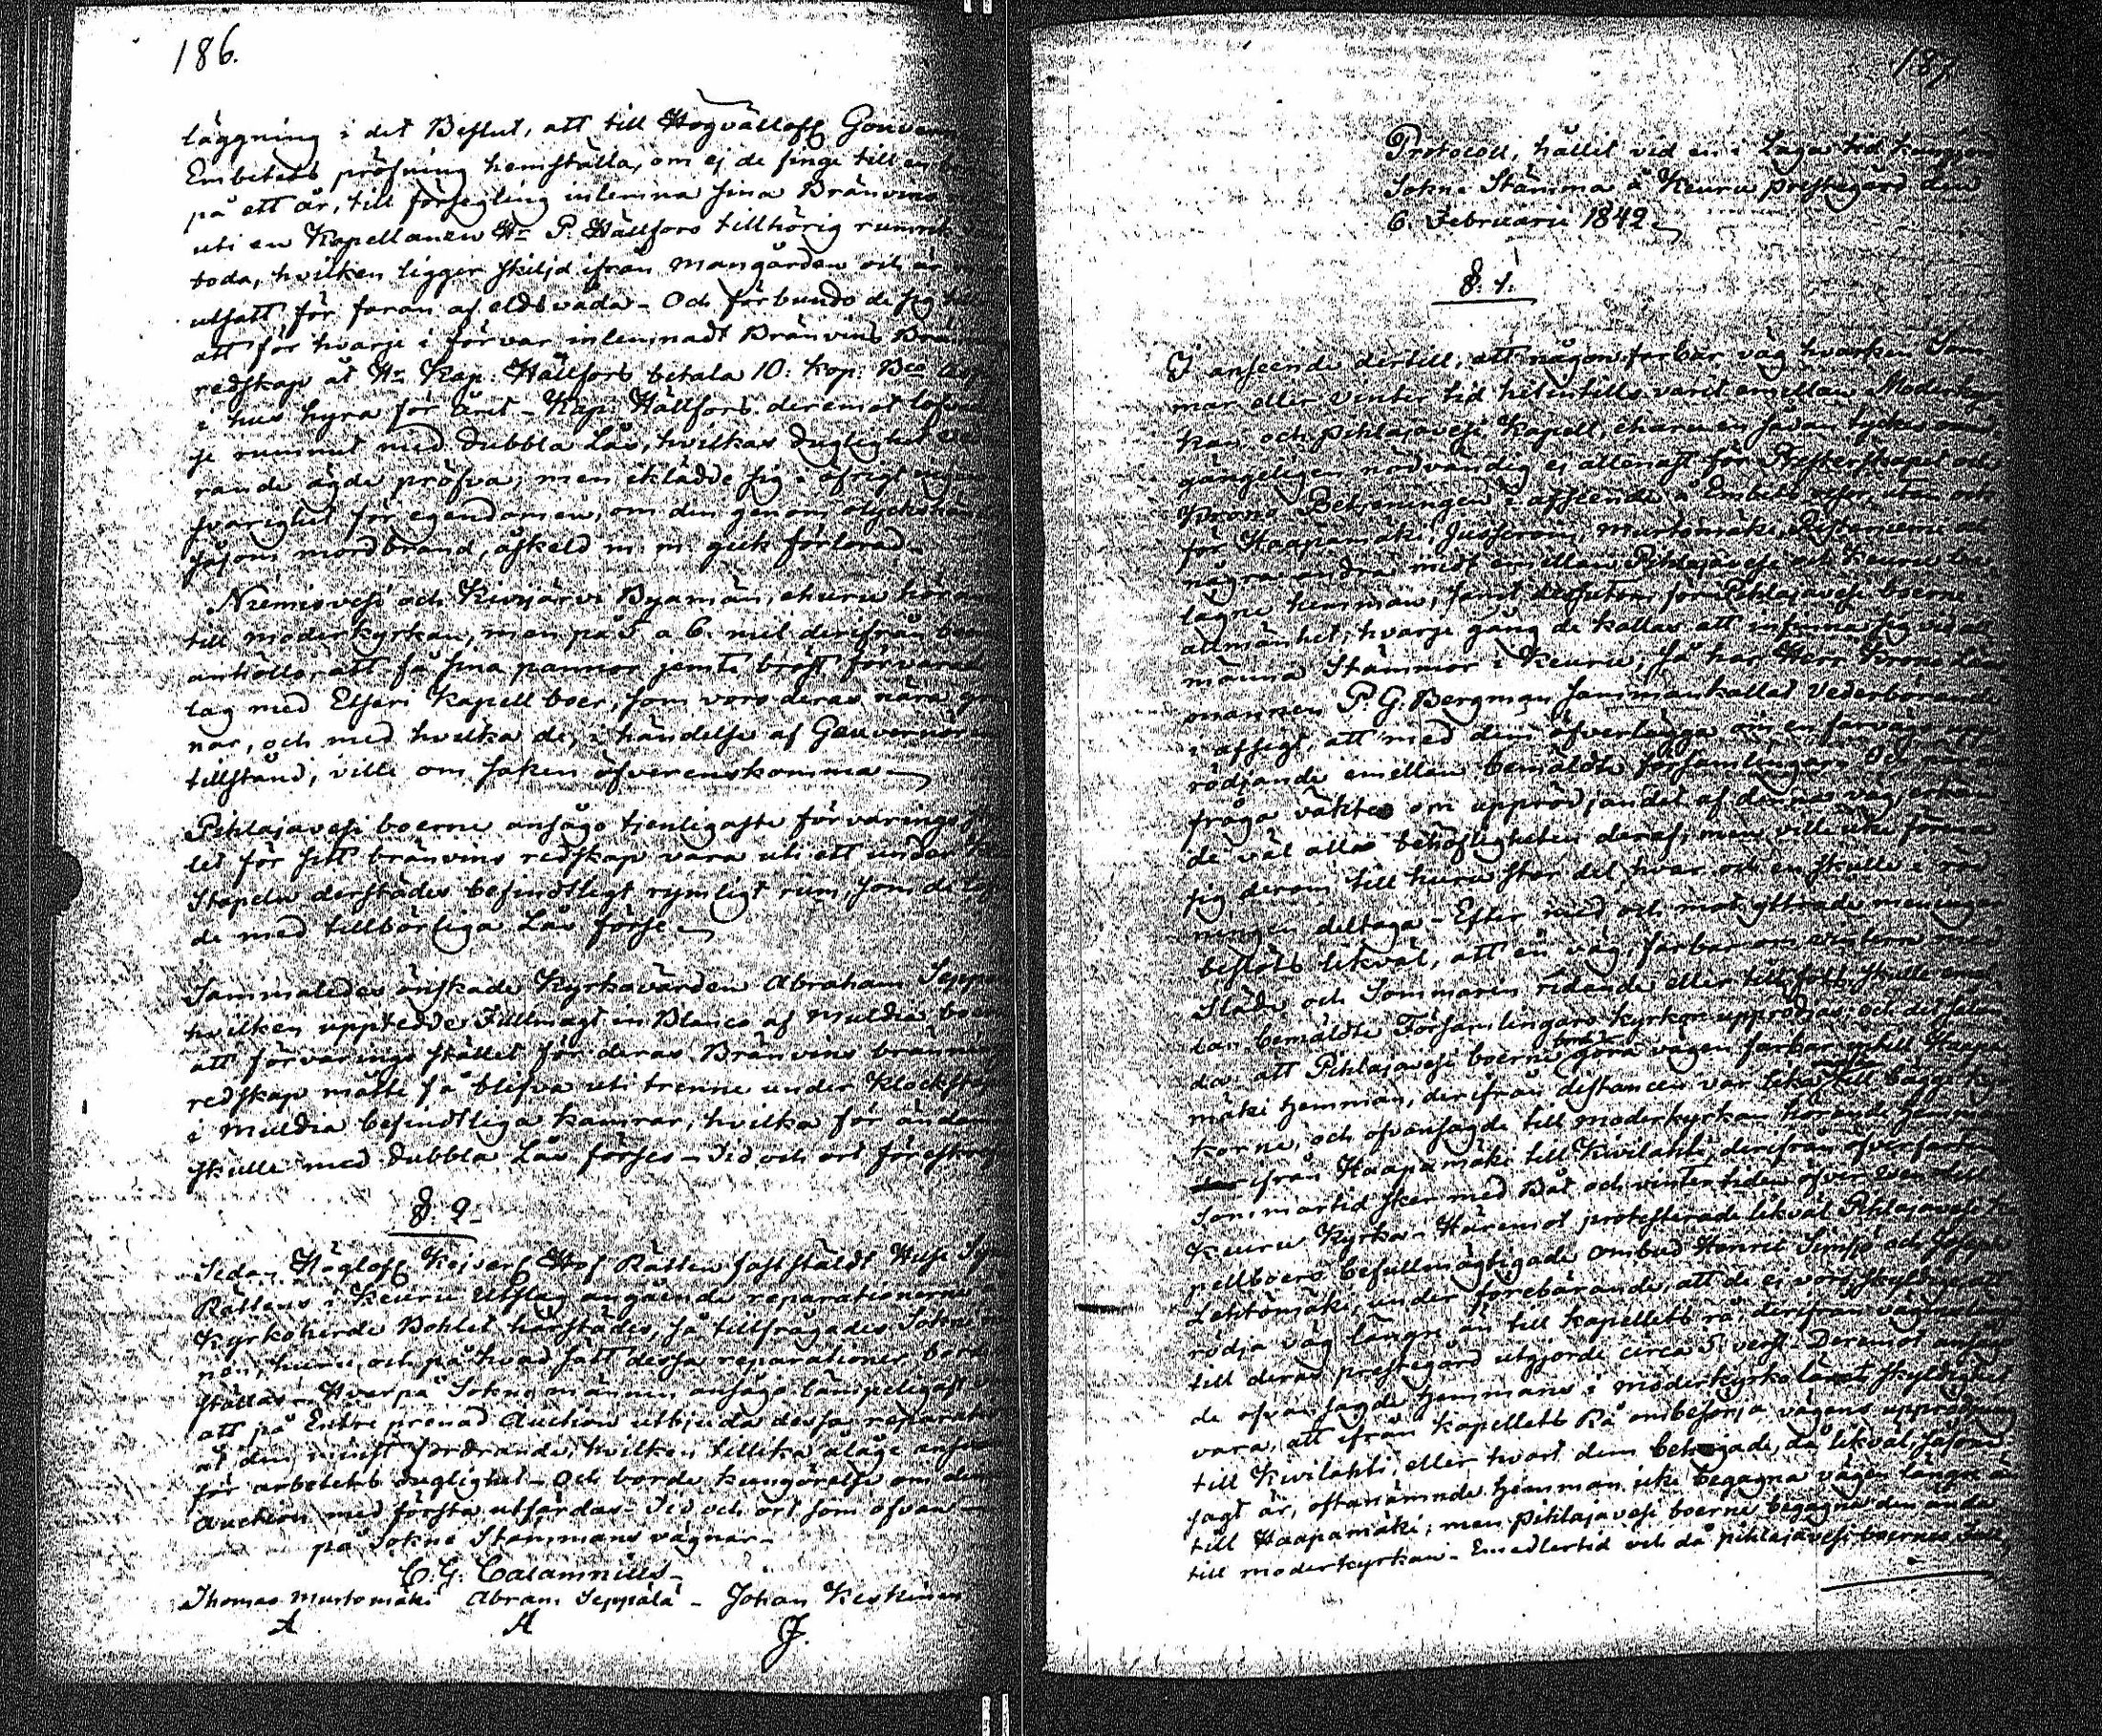 186.
läggning i det Beslut, att till Högvällofl Gouvern
Embetets pröfning hemställa, om ej de finge till en
på ett år, till försegling inlemna sina Bränvins
uti en Kapellanen Hr P. Hällfors tillhörig
boda, hvilken ligger skiljd ifrån mangården och är
utsatt för faran af eldsvåda – Och förbundo de sig
att för hvarje i förvar inlemnadt Bränvins
redskap åt Hr Kap: Hällfors betala 10. Kop: Bco
i hus hyra för året – Kap: Hällfors deremot lofvad
se rummet med dubbla Lås, hvilkas duglighet
rande ägde pröfva; men iklädde sig i öfrigt ingen
svarighet för egendomen, om den genom olyckshän
såsom mordbrand, åskeld m. m. gick förlorad –
Niemisvesi och Kivijärvi Byamän, ehuru höran
till moderkyrkan, men på 5 a 6. mil derifrån
anhöllo att få sina pannor jemte bröst förvarad
lag med Etseri Kapell boer, som voro deras nära gr
nar, och med hvilka de, i händelse af Gouvernörens
tillstånd, ville om saken öfverenskomma –
Pihlajavesi boerne ansågo tjenligaste förvarings stäl
let för sitt bränvins redskap vara uti ett under
Stapeln derstädes befindtligt rymligt rum, som de lof
de med tillbörliga Lås förse –
Sammaledes önskade Kyrkovärden Abraham Seppä
hvilken upptedde Fullmagt in Blanco af Muldia boer
att förvarings stället för deras Bränvins brännin
redskap måtte få blifva uti trenne under Klockstap
i Muldia befindtliga kamrar, hvilka för ändam
skulle med dubbla Lås förses – Tid och ort föreskref
§. 2 –
Sedan Höglofl Keiserl Hof Rätten fastställdt Husesyns
Rättens i Keuru Utslag angående reparationerne
Kyrkoherde Bohlet härstädes, så tillfrågades Sokne
nen, huru och på hvad sätt dessa reparationer borde
ställas – Hvarpå Sokne männen ansågo lämpeligast
att på Entreprenad Auction utbjuda dessa reparatio
åt den minst fordrande, hvilken tillika ålåge ansvar
för arbetets duglighet – Och borde kungörelse om den
Auction med första utfärdas – Tid och ort som ofvan –
på Sokne Stämmans vägnar –
C. G. Calamnius –
Thomas Murtomäki Abram Seppälä – Johan Keskinen
A A J.
187
Protocoll, hållit vid en i Laga tid kungjord
Sokne Stämma å Keuru prestegård den
6. Februarii 1842 –
§. 1.
I anseende dertill, att någon farbar väg hvarken Som
mar eller Vinter tid hitintills varit emellan Moderkyr
kan och Pihlajavesi Kapell, ehuru en sådan tyckes
gängeligen nödvändig ej allenast för Presterskapet och
Krono Betjeningen i afseende å Embets resor, utan och
för Haapamäki, Jusseroin, Murtomäki,
några andra midt emellan Pihlajavesi och Keuru be
lägne hemman, samt dessutom för Pihlajavesi boerne i
allmänhet, hvarje gång de kallas att infinna sig vid al
männa Stämmor i Keuru; så har Herr Krono Läns
mannen P. G. Bergman sammankallat Vederbörande
i afsigt, att med dem öfverlägga om en farvägs upp
rödjande emellan bemäldte församlingar. Och när
fråga väktes om upprödjandet af denna väg, erkän
de väl alla behöfligheten deraf, men ville icke förena
sig derom till huru stor del hvar och en skulle i röd
ningen deltaga – Efter med och mot yttrade meningar
beslöts likväl, att en väg, farbar om vintern med
Släde och Sommaren ridande eller till fots, skulle emel
lan bemäldte Församlingars kyrkor upprödjas, och det sålun
da, att Pihlajavesi boerne borde göra vägen farbar intill Haapa
mäki hemman, derifrån distancen var lika till bägge kyr
korne, och ofvansagde till moderkyrkan hörande hemman
ifrån Haapamäki till Kivilahti, derifrån öfverfarten
Sommartid sker med Båt och vintertiden öfver isen till
Keuru Kyrka – Häremot protesterade likväl Pihlajavesi Ka
pellboers befullmägtigade ombud Henric Simpo och Joseph
Lehtomäki, under förebärande, att de ej voro skyldiga att
rödja väg längre än till kapellets rå, derifrån väganlän
till deras prestegård utgjorde circa 5 verst – Deremot ansågo
de ofvansagde hemmans i moderkyrkolänet skyldighet
vara, att ifrån kapellets Rå ombesörja vägens upprödjning
till Kivilahti, eller hvart dem behagade, då likväl, såsom
sagt är, oftanämnde hemman icke begagna vägen längre än
till Haapamäki; men Pihlajavesi boerne begagna den ända
till moderkyrkan – Emedlertid och då Pihlajavesi boernes